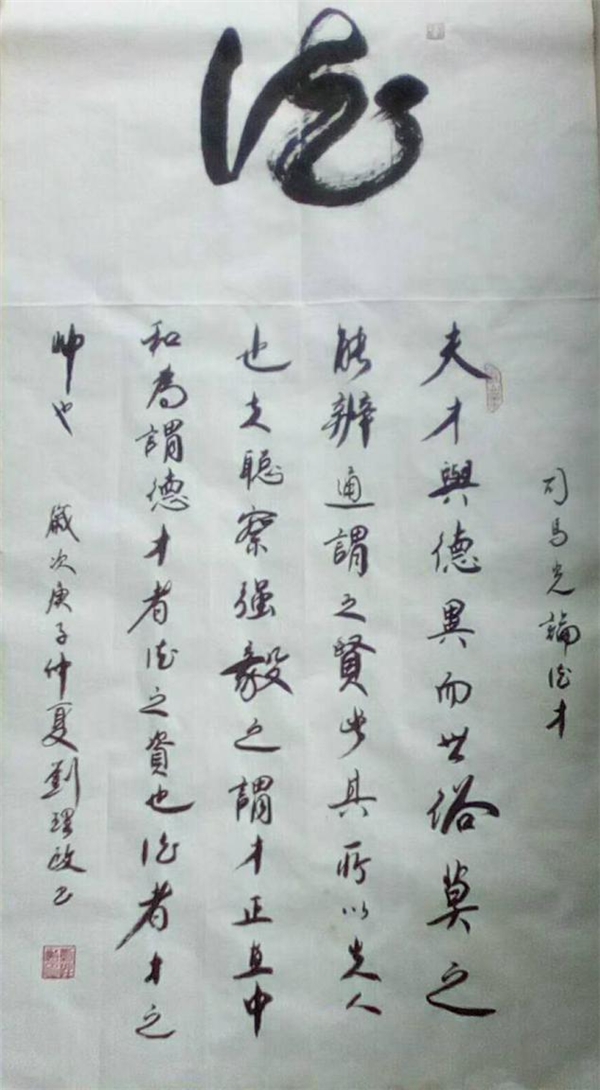 德
司馬光論德才
夫才與德異而世俗莫之
能辨通謂之賢此其所以失人
也夫聰察强毅之謂才正直中
和為謂德才者德之資也德者才之
帥也 歲次庚子仲夏劉理政书